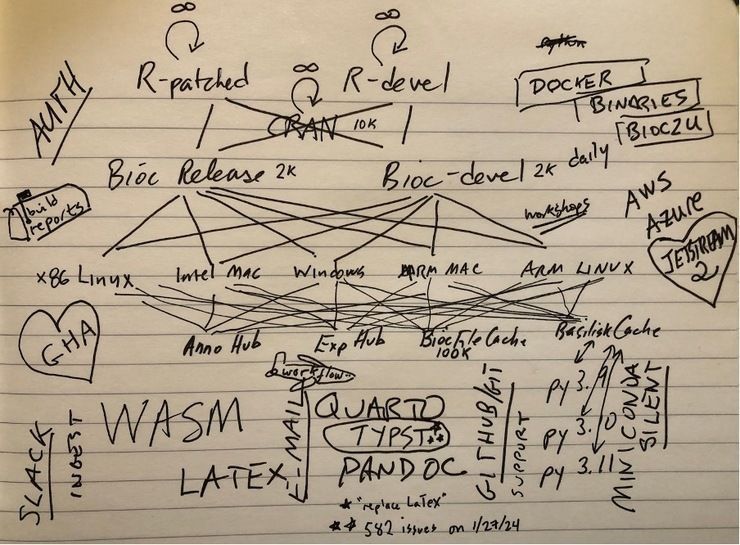 ∞ ∞
R-patched R-devel
∞
CRAN 10K
AUTH
DOCKER
BINARIES
BIOC2U
Bioc Release 2K Bioc-devel 2K daily
build reports
workshops
AWS
Azure
JETSTREAM 2
x86 Linux Intel MAC Windows ARM MAC ARM LINUX
GHA
Anno Hub Exp Hub BiocFileCache Basilisk Cache
100K
workflow
SLACK
INGEST
WASM
LATEX
E-MAIL
QUARTO
TYPST **
PANDOC
* "replace LaTex"
** 582 issues on 1/27/24
GITHUB/GIT
SUPPORT
py 3.9
py 3.10
py 3.11
MINICONDA
SILENT